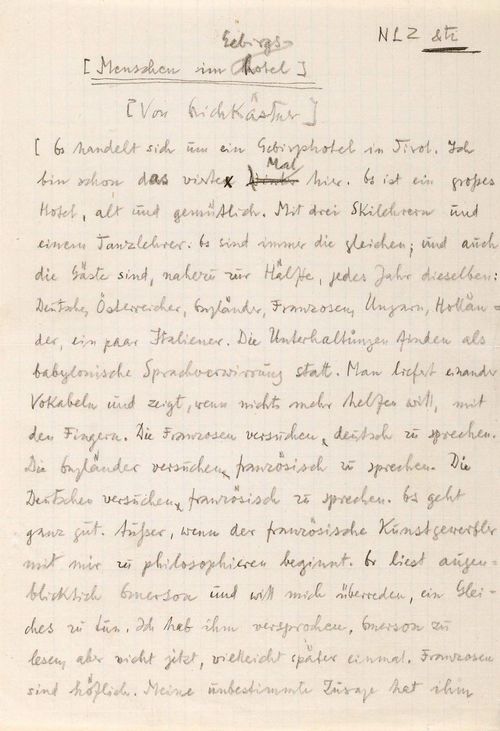 NLZ &tz
Gebirgs-
[Menschen im Hotel]
[Von Erich Kästner]
[Es handelt sich um ein Gebirgshotel in Tirol. Ich
Mal
bin schon das vierte hier. Es ist ein großes
Hotel, alt und gemütlich. Mit drei Skilehrern und
einem Tanzlehrer. Es sind immer die gleichen; und auch
die Gäste sind, nahezu zur Hälfte, jedes Jahr dieselben:
Deutsche, Österreicher, Engländer, Franzosen, Ungarn, Hollän-
der, ein paar Italiener. Die Unterhaltungen finden als
babylonische Sprachverwirrung statt. Man liefert einander
Vokabeln und zeigt, wenn nichts mehr helfen will, mit
den Fingern. Die Franzosen versuchen, deutsch zu sprechen.
Die Engländer versuchen, französisch zu sprechen. Die
Deutschen versuchen, französisch zu sprechen. Es geht
ganz gut. Außer, wenn der französische Kunstgewerbler
mit mir zu philosophieren beginnt. Er liest augen-
blicklich Emerson und will mich überreden, ein Glei-
ches zu tun. Ich hab ihm versprochen, Emerson zu
lesen, aber nicht jetzt, vielleicht später einmal. Franzosen
sind höflich. Meine unbestimmte Zusage hat ihm